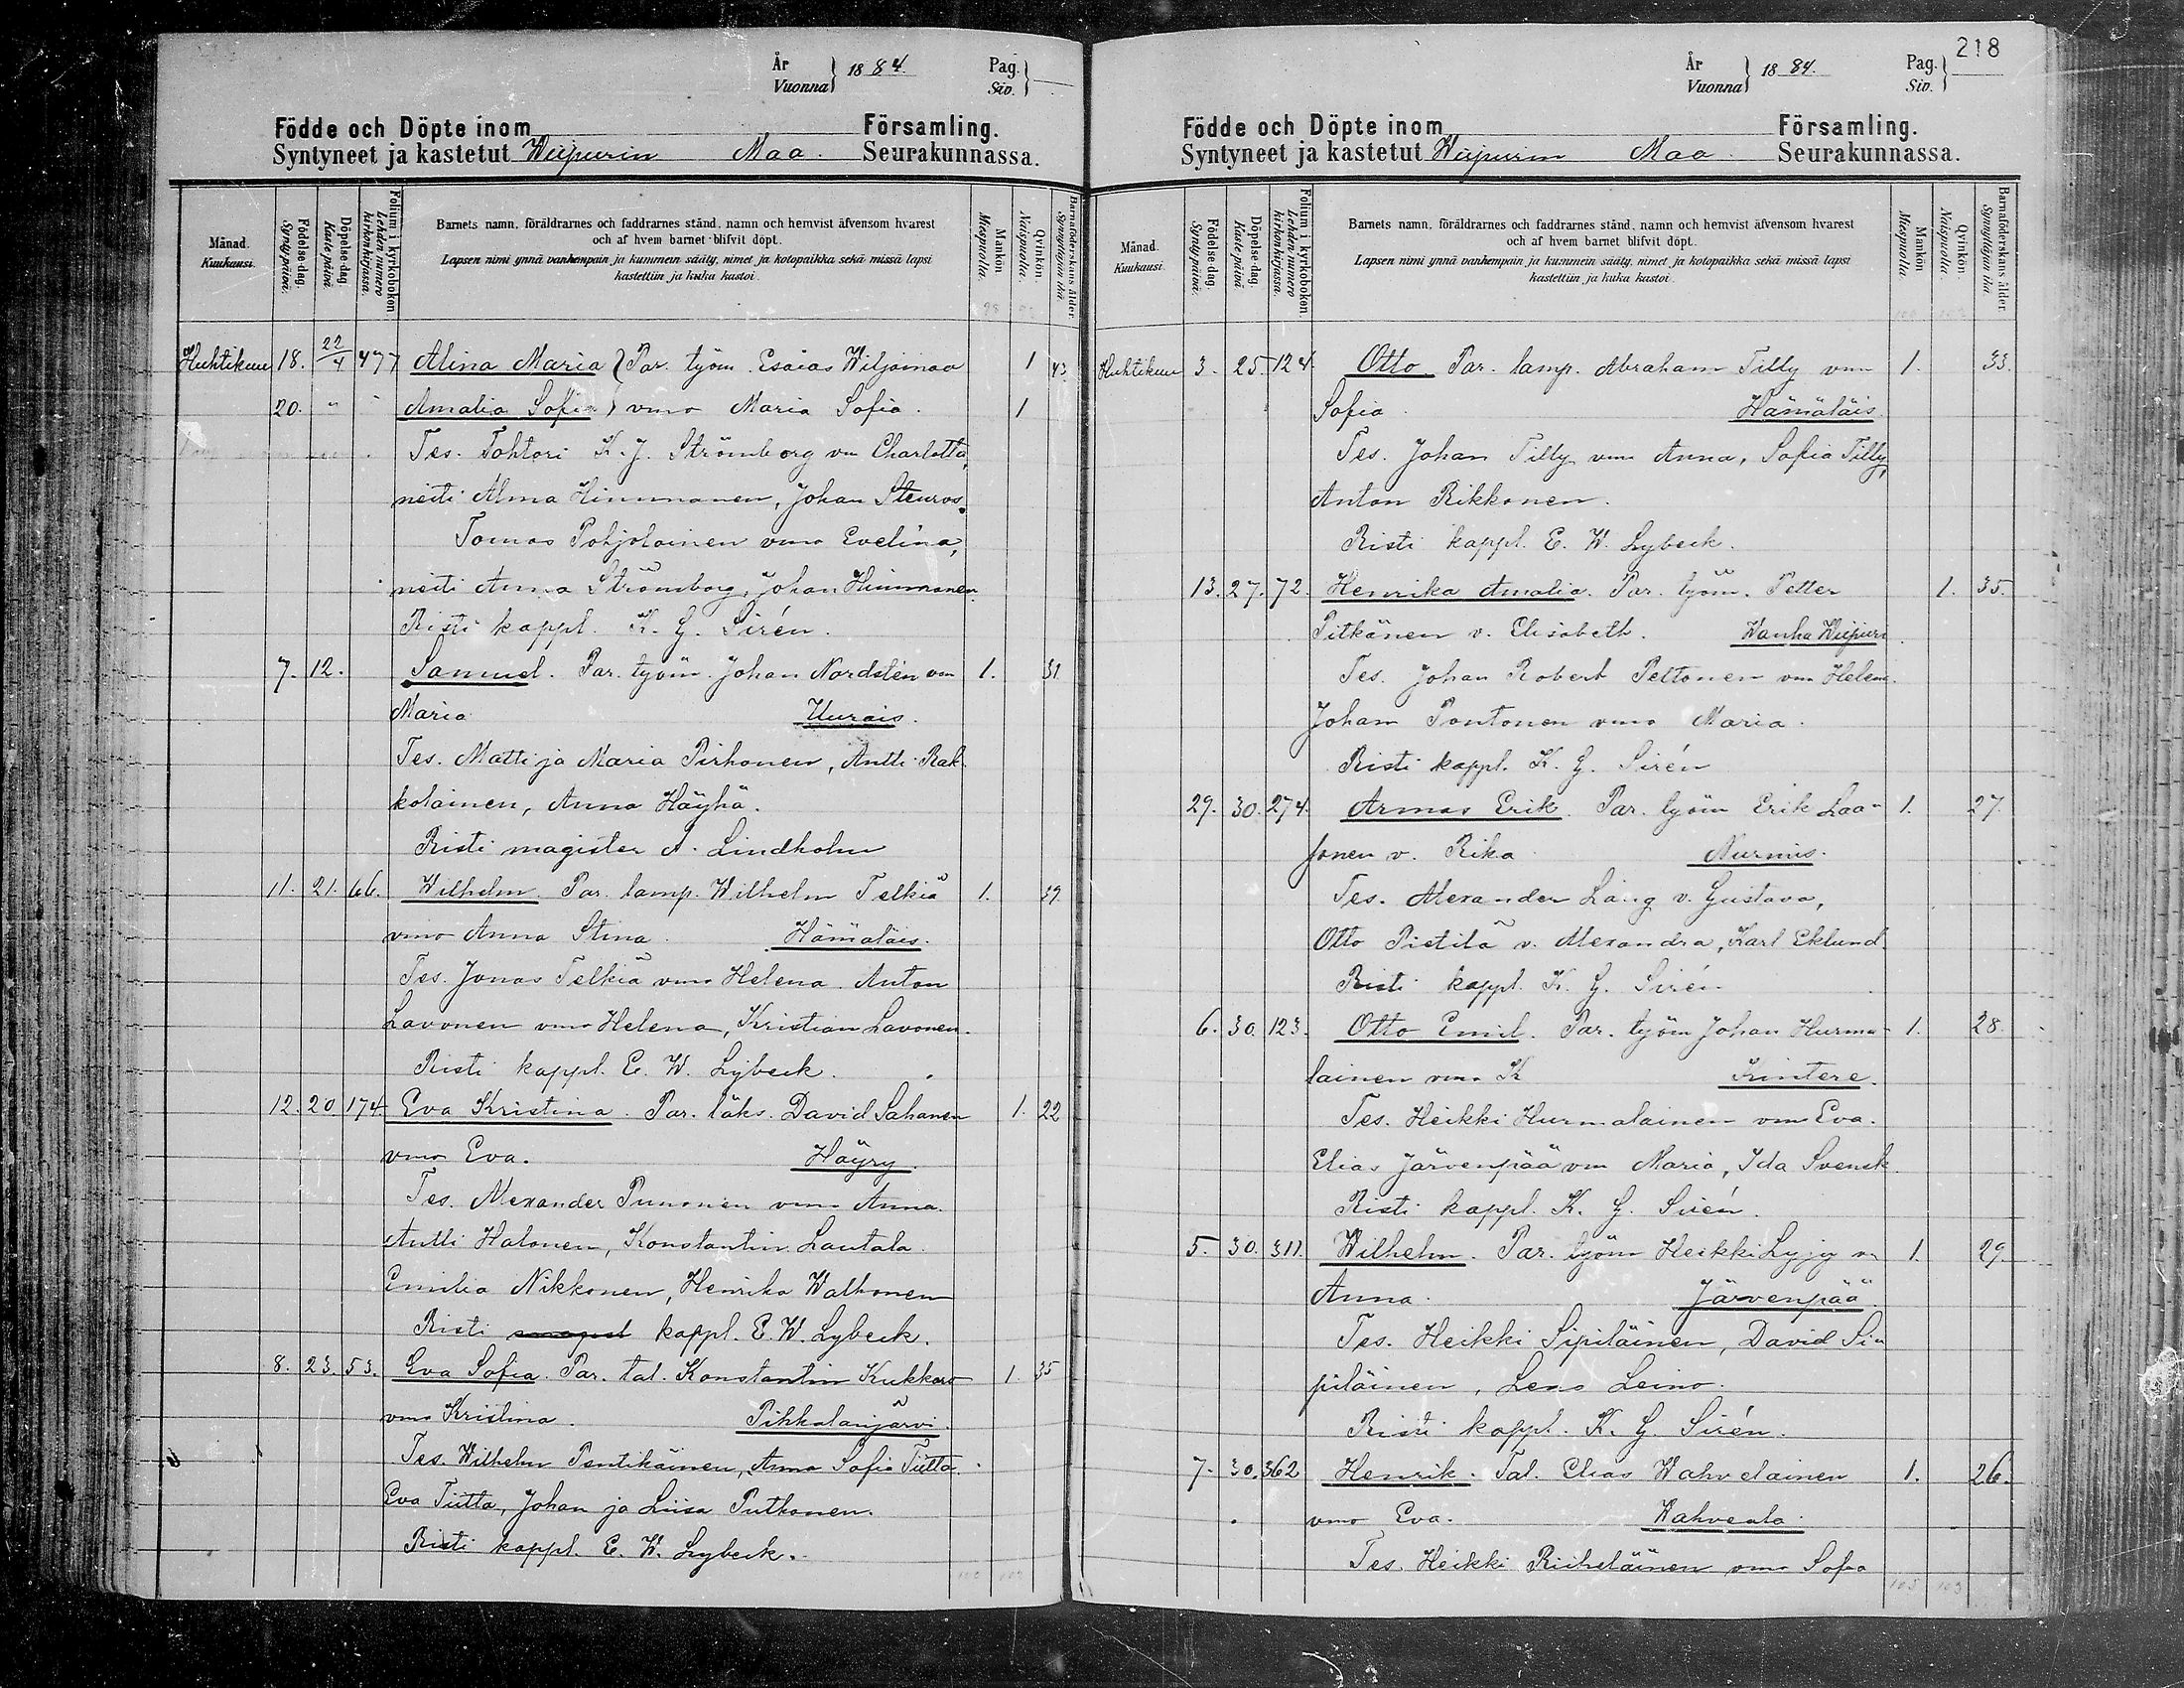 År
Vuonna } 1884.
Pag.
Siv. }
Födde och Döpte inom Församling.
Syntyneet ja kastetut Wiipurin Maa. Seurakunnassa.
Månad. Kuukausi.
Födelse dag. Syntypäivä.
Döpelse dag. Kaste päivä.
Folium i kyrkoboken Lehden numero kirkonkirjassa.
Barnets namn, föräldrarnes och faddrarnes stånd, namn och hemvist äfvensom hvarest
och af hvem barnet blifvit döpt.
Lapsen nimi ynnä vanhempain ja kummein sääty, nimet ja kotopaikka sekä missä lapsi
kastettiin ja kuka kastoi.
Mankön Miespuolia.
Qvinkön. Naispuolia.
Barnaföderskans ålder. Synnyttäjän ikä.
Huhtikuu 18. 22/4 477 Alina Maria } Par. työm. Esaias Wiljamaa 1 43.
20. " " Amalia Sofia } vmo Maria Sofia. 1
Tes. Tohtori K. J. Strömborg vm Charlotta,
neiti Alma Himmanen, Johan Steuros.
Tomas Pohjolainen vmo Evelina,
neiti Anna Strömborg, Johan Himmanen.
Risti kappl. K. G. Sirén.
7. 12. Samuel. Par. työm. Johan Nordstén vm 1. 31.
Maria Uurais.
Tes. Matti ja Maria Pirhonen, Antti Rak
kolainen, Anna Häyhä.
Risti magister A. Lindholm
11. 21. 66. Wilhelm. Par. lamp. Wilhelm Telkiä 1. 39.
vmo Anna Stina. Hämäläis.
Tes. Jonas Telkiä vmo Helena. Anton
Lavonen vmo Helena, Kristian Lavonen.
Risti kappl. E. W. Lybeck.
12. 20 174 Eva Kristina. Par. läks. David Sahanen 1. 22
vmo Eva. Häyry.
Tes. Alexander Punonen vmo Anna.
Antti Halonen, Konstantin Lautala.
Emilia Nikkonen, Henrika Walhonen
Risti kappl. E. W. Lybeck.
8. 23. 53. Eva Sofia. Par. tal. Konstantin Kukkaro 1. 35
vmo Kristina. Pihkalanjärvi.
Tes. Wilhelm Pentikäinen, Anna Sofia Tiitta.
Eva Tiitta, Johan ja Liisa Putkonen.
Risti kappl. E. W. Lybeck.
218
År
Vuonna } 1884.
Pag.
Siv. }
Födde och Döpte inom Församling.
Syntyneet ja kastetut Wiipurin Maa Seurakunnassa.
Månad. Kuukausi.
Födelse dag. Syntypäivä.
Döpelse dag. Kaste päivä.
Folium i kyrkoboken Lehden numero kirkonkirjassa.
Barnets namn, föräldrarnes och faddrarnes stånd, namn och hemvist äfvensom hvarest
och af hvem barnet blifvit döpt.
Lapsen nimi ynnä vanhempain ja kummein sääty, nimet ja kotopaikka sekä missä lapsi
kastettiin ja kuka kastoi.
Mankön Miespuolia.
Qvinkön. Naispuolia.
Barnaföderskans ålder. Synnyttäjän ikä.
Huhtikuu 3. 25. 124. Otto. Par. lamp. Abraham Tilly vmo 1. 33.
Sofia. Hämäläis.
Tes. Johan Tilly vmo Anna, Sofia Tilly,
Anton Rikkonen.
Risti kappl. E. W. Lybeck.
13. 27. 72. Henrika Amalia. Par. työm. Petter 1. 35.
Pitkänen v. Elisabeth. Wanha Wiipuri.
Tes. Johan Robert Peltonen vm Helena.
Johan Pontonen vmo Maria.
Risti kappl. K. G. Sirén
29. 30. 274. Armas Erik. Par. työm Erik Laa- 1. 27.
sonen v. Rika Nurmis.
Tes. Alexander Lang v. Gustava,
Otto Pistilä v. Alexandra, Karl Eklund
Risti kappl. K. G. Sirén
6. 30. 123. Otto Emil. Par. työm Johan Hurma- 1. 28.
lainen vmo K Kintere.
Tes. Heikki Hurmalainen vmo Eva.
Elias Järvenpää vm Maria, Ida Svensk.
Risti kappl. K. G. Sirén.
5. 30. 311. Wilhelm. Par. työm Heikki Lyjyy vm 1. 29.
Anna. Järvenpää.
Tes. Heikki Sipiläinen, David Si-
piläinen, Lena Leino.
Risti kappl. K. G. Sirén.
7. 30. 362 Henrik. Tal. Elias Wahvelainen 1. 26.
vmo Eva. Wahveala.
Tes. Heikki Riiheläinen vmo Sofia